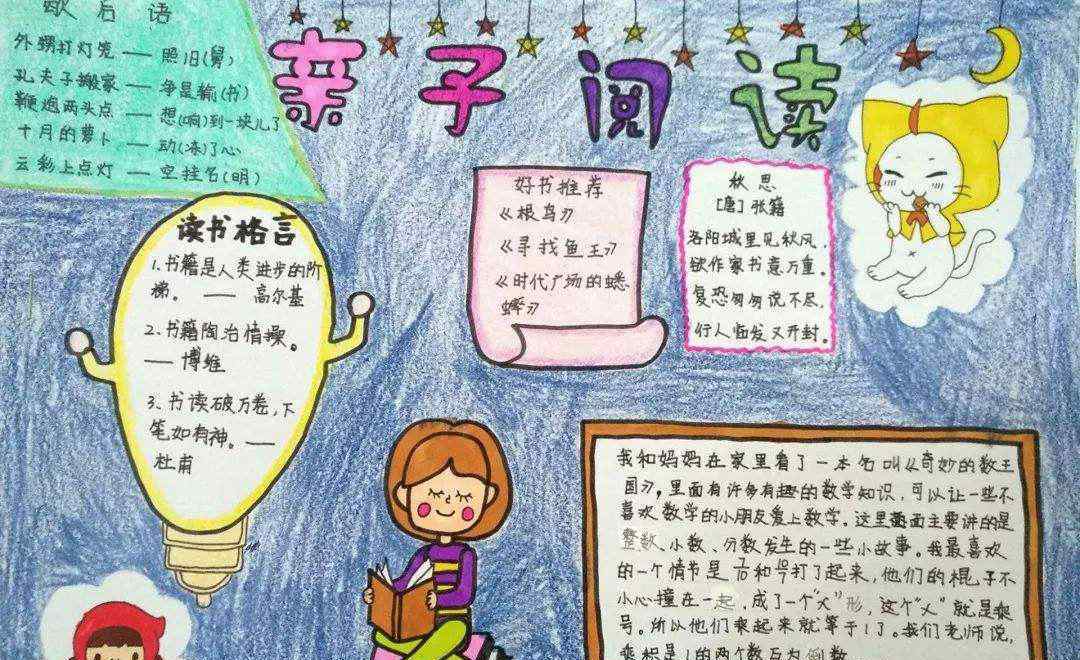 歇后语
外甥打灯笼 —— 照旧(舅)
孔夫子搬家 —— 争是输(书)
鞭炮两头点 —— 想(响)到一块儿了
十月的萝卜 —— 动(冻)了心
云彩上点灯 —— 空挂名(明)
亲子阅读
读书格言
1.书籍是人类进步的阶
梯。 —— 高尔基
2.书籍陶冶情操。
—— 博维
3.书读破万卷,下
笔如有神。——
杜甫
好书推荐
《根鸟》
《寻找鱼王》
《时代广场的蟋
蟀》
秋思
[唐]张籍
洛阳城里见秋风,
欲作家书意万重。
复恐匆匆说不尽,
行人临发又开封。
我和妈妈在家里看了一本名叫《奇妙的数王
国》,里面有许多有趣的数学知识,可以让一些不
喜欢数学的小朋友爱上数学。这里面主要讲的是
整数、小数、分数发生的一些小故事。我最喜欢
的一个情节是 和 打了起来,他们的棍子不
小心撞在一起,成了一个"×"形,这个"×"就是乘
号。所以他们乘起来就等于1了。我们老师说,
乘积是1的两个数互为倒数